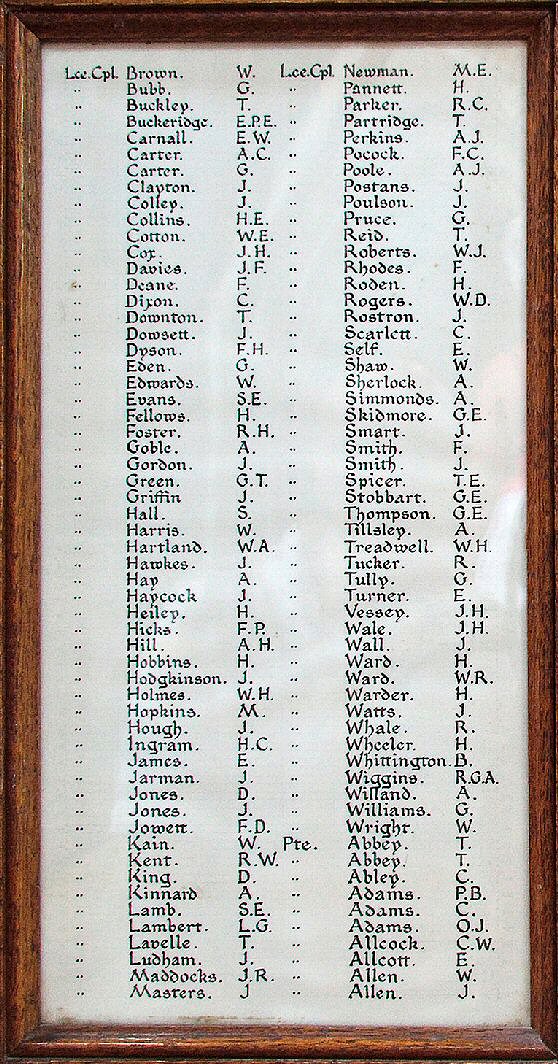 Lce.Cpl. Brown. W. Lce.Cpl. Newman. M.E.
" Bubb. G. " Pannett. H.
" Buckley. T. " Parker. R.C.
" Buckeridge. E.P.E. " Partridge. T.
" Carnall. E.W. " Perkins. A.J.
" Carter. A.C. " Pocock. F.C.
" Carter. G. " Poole. A.J.
" Clayton. J. " Postans. J.
" Colley. J. " Poulson. J.
" Collins. H.E. " Pruce. G.
" Cotton. W.E. " Reid. T.
" Cox. J.H. " Roberts. W.J.
" Davies. J.F. " Rhodes. F.
" Deane. F. " Roden. H.
" Dixon. C. " Rogers. W.D.
" Downton. T. " Rostron. J.
" Dowsett. J. " Scarlett. C.
" Dyson. F.H. " Self. E.
" Eden. G. " Shaw. W.
" Edwards. W. " Sherlock. A.
" Evans. S.E. " Simmonds. A.
" Fellows. H. " Skidmore. G.E.
" Foster. R.H. " Smart. J.
" Goble. A. " Smith. F.
" Gordon. J. " Smith. J.
" Green. G.T. " Spicer. T.E.
" Griffin J. " Stobbart. G.E.
" Hall. S. " Thompson. G.E.
" Harris. W. " Tillsley. A.
" Hartland. W.A. " Treadwell. W.H.
" Hawkes. J. " Tucker. R.
" Hay A. " Tully. G.
" Haycock J. " Turner. E.
" Heiley. H. " Vessey. J.H.
" Hicks. F.P. " Wale. J.H.
" Hill. A.H. " Wall. J.
" Hobbins. H. " Ward. H.
" Hodgkinson. J. " Ward. W.R.
" Holmes. W.H. " Warder. H.
" Hopkins. M. " Watts. J.
" Hough. J. " Whale. R.
" Ingram. H.C. " Wheeler. H.
" James. E. " Whittington. B.
" Jarman. J. " Wiggins. R.G.A.
" Jones. D. " Willand. A.
" Jones. J. " Williams. G.
" Jowett. F.D. " Wright. W.
" Kain. W. Pte. Abbey. T.
" Kent. R.W. " Abbey. T.
" King. D. " Abley. C.
" Kinnard A. " Adams. P.B.
" Lamb. S.E. " Adams. C.
" Lambert. L.G. " Adams. O.J.
" Lavelle. T. " Allcock. C.W.
" Ludham. J. " Allcott. E.
" Maddocks. J.R. " Allen. W.
" Masters. J " Allen. J.